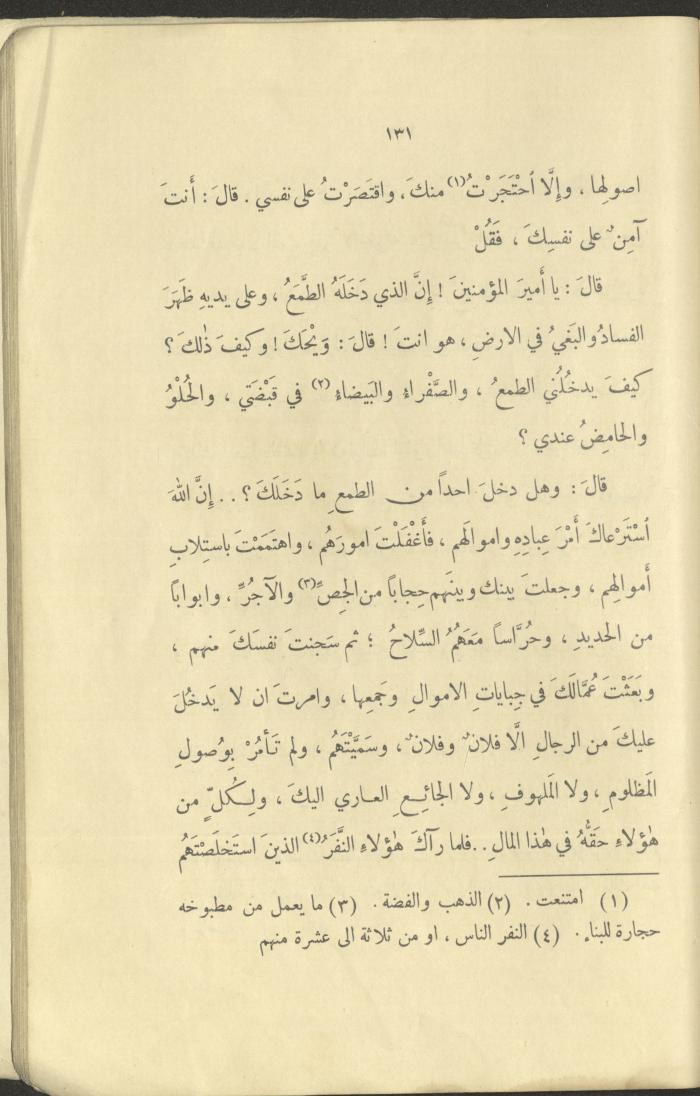 ١٣١
اصولِها ، وإِلَّا ٱحْتَجَرْتُ(١) منكَ، واقتَصَرْتُ على نفسي . قالَ : أَنتَ
آمِنٌ على نفسِكَ ، فَقُلْ
قالَ : يا أَميرَ المؤمنينَ ! إِنَّ الذي دَخَلَهُ الطَّمَعُ ، وعلى يديهِ ظَهَرَ
الفسادُ والبَغيُ في الارضِ ، هو انتَ ! قالَ : وَيْحَكَ ! وكيفَ ذٰلكَ ؟
كيفَ يدخُلُني الطمعُ ، والصَّفْراءُ والبَيضاءُ (٢) في قَبْضَتي ، والحُلْوُ
والحامِضُ عندي ؟
قالَ : وهل دخلَ احداً من الطمعِ ما دَخَلَكَ ؟ . . إِنَّ اللّٰهَ
ٱسْتَرْعاكَ أَمْرَ عِبادِهِ واموالَهم ، فأَغْفَلْتَ امورَهُم ، واهتَمَمْتَ باستِلابِ
أَموالِهِم ، وجعلتَ بينك وبينَهم حِجاباً من الجِصِّ(٣) والآجُرِّ ، وابواباً
من الحديدِ ، وحُرَّاساً مَعَهُمُ السِّلاحُ ؛ ثم سَجنتَ نفسَكَ منهم ،
وبَعَثْتَ عُمَّالَكَ في جِباياتِ الاموالِ وجَمعِها ، وامرتَ ان لا يَدخُلَ
عليكَ من الرجالِ الَّا فلانٌ وفلانٌ ، وسَمَّيْتَهُم ، ولم تَأمُرْ بِوُصولِ
المَظلومِ ، ولا المَلهوفِ ، ولا الجائعِ العاري اليكَ ، ولِكُلٍّ من
هٰؤلاءِ حَقُّهُ في هٰذا المالِ . . فلما رآكَ هٰؤلاءِ النَّفَرُ(٤) الذينَ استَخلَصْتَهُم
(١) امتنعت . (٢) الذهب والفضة . (٣) ما يعمل من مطبوخه
حجارة للبناء . (٤) النفر الناس ، او من ثلاثة الى عشرة منهم